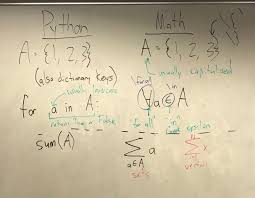 Python
A = {1, 2, 3}
(also dictionary keys)
usually lowercase
for a in A:
returns True or False
sum(A)
Math
A = {1, 2, 3}
usually capitalized
\forall
\in
∀a∈A
for all
"in"
epsilon
∑ a
a∈A
sets
∑ x
vectors